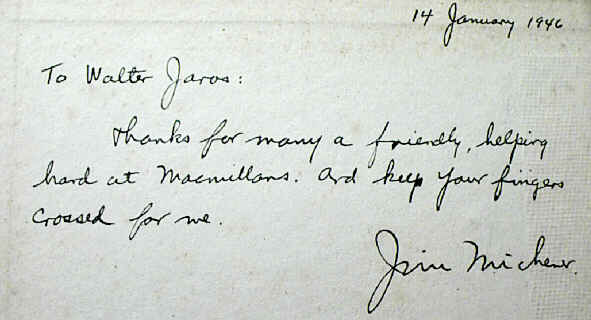 14 January 1946
To Walter Jaros:
Thanks for many a friendly, helping
hand at Macmillans. And keep your fingers
crossed for me.
Jim Michener.